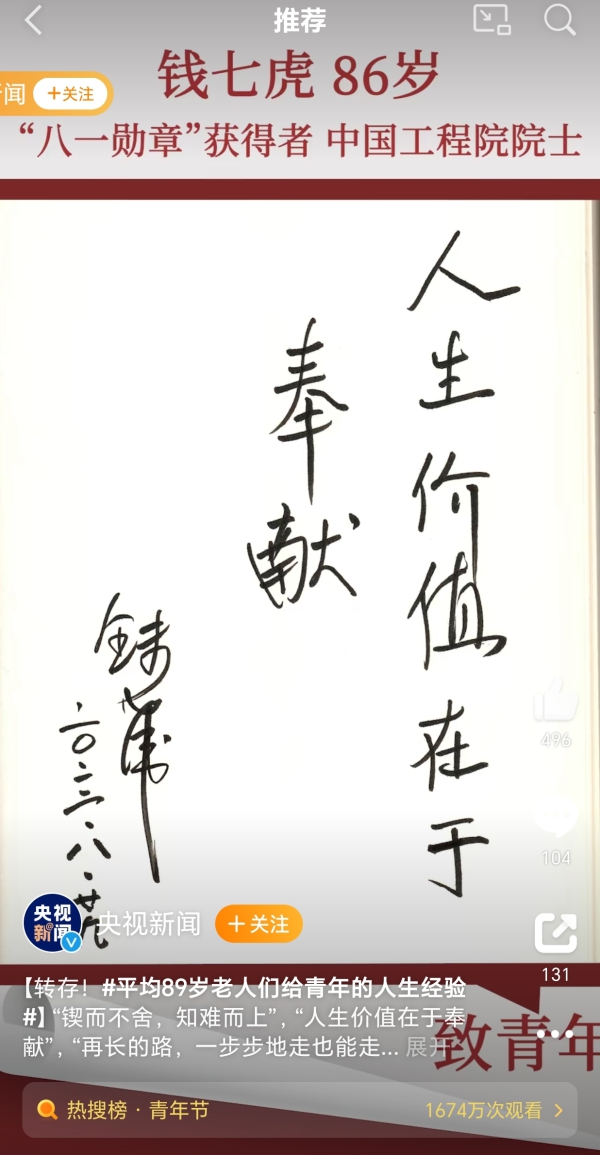 推荐
闻
+关注
钱七虎 86岁
“八一勋章”获得者 中国工程院院士
人生价值在于
奉献
钱七虎
二〇二三·八·廿九
496
104
131
央视新闻
央视新闻
+关注
【转存！#平均89岁老人们给青年的人生经验
#】“锲而不舍，知难而上”，“人生价值在于奉
献”，“再长的路，一步步地走也能走... 展开
致青年
热搜榜 · 青年节
1674万次观看